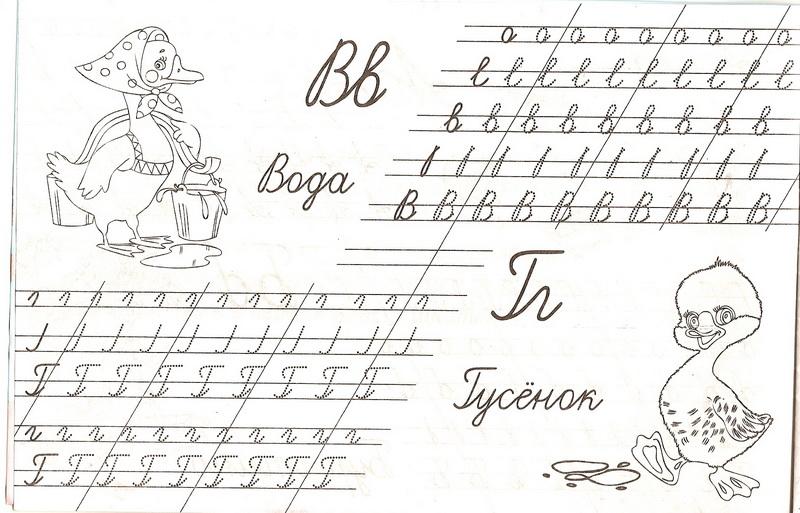 Вв
о о о о о о о о о
в в в в в в в в в
Вода
В В В В В В В В В В
Гг
Г Г Г Г Г Г Г Г Г
Гусёнок
г г г г г г г г г г г
Г Г Г Г Г Г Г Г